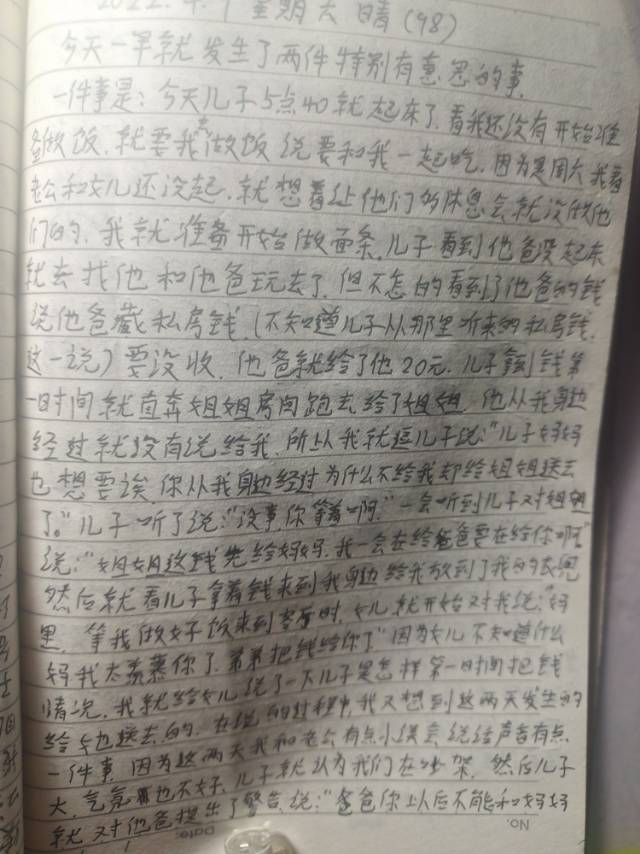 2022.4.9 星期六 晴 (98)
今天一早就发生了两件特别有意思的事.
一件事是:今天儿子5点40就起来了.看我还没有开始准
备做饭.就要我去做饭说要和我一起吃.因为是周六我看
老公和女儿还没起.就想着让他们多休息会就没做他
们的.我就准备开始做面条.儿子看到他爸没起来
就去找他和他爸玩去了.但不怎的看到了他爸的钱
说他爸藏私房钱.(不知道儿子从那里听来的私房钱
这一说)要没收.他爸就给了他20元.儿子拿到钱第
一时间就直奔姐姐房间跑去给了姐姐.他从我身边
经过就没有说给我.所以我就逗儿子说:"儿子妈妈
也想要诶你从我身边经过为什么不给我却给姐姐送去
了."儿子听了说:"没事你等着啊."一会听到儿子对姐姐
说:"姐姐这钱先给妈妈.我一会在给爸爸要在给你啊"
然后就看儿子拿着钱来到我身边给我放到了我的衣兜
里.等我做好饭来到客厅时.女儿就开始对我说:"妈
妈我太羡慕你了.弟弟把钱给你了"因为女儿不知道什么
情况.我就给女儿说了一下儿子是怎样第一时间把钱
给她送去的.在说的过程中,我又想到这两天发生的
一件事.因为这两天我和老公有点小误会说话声音有点
大.气氛也不好.儿子就认为我们在吵架.然后儿子
就对他爸提出了警告说:"爸爸你以后不能和妈妈
Date.
No.